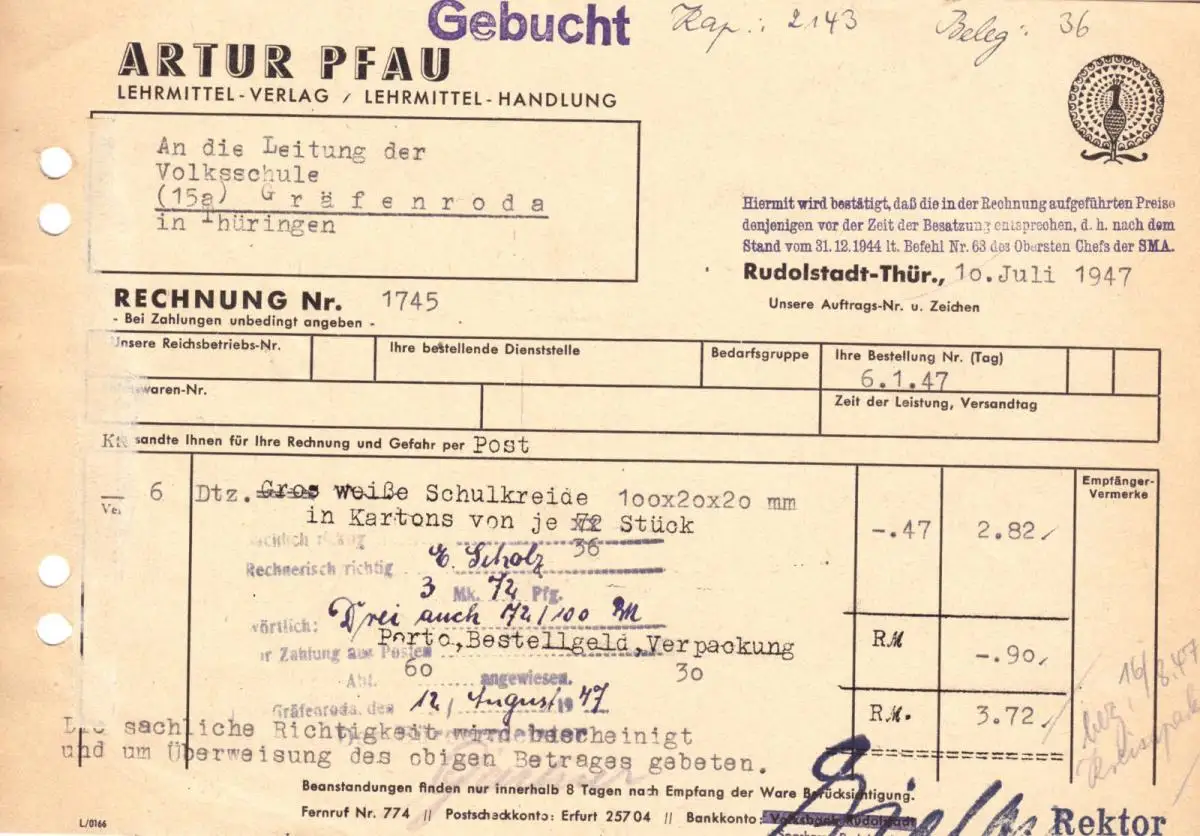 Gebucht Kap.: 2143 Beleg: 36
ARTUR PFAU
LEHRMITTEL-VERLAG / LEHRMITTEL-HANDLUNG
An die Leitung der
Volksschule
(15a) Gräfenroda
in Thüringen
Hiermit wird bestätigt, daß die in der Rechnung aufgeführten Preise
denjenigen vor der Zeit der Besatzung entsprechen, d. h. nach dem
Stand vom 31.12.1944 lt. Befehl Nr. 63 des Obersten Chefs der SMA.
Rudolstadt-Thür., 10. Juli 1947
Unsere Auftrags-Nr. u. Zeichen
RECHNUNG Nr. 1745
- Bei Zahlungen unbedingt angeben -
Unsere Reichsbetriebs-Nr. Ihre bestellende Dienststelle Bedarfsgruppe Ihre Bestellung Nr. (Tag)
6.1.47
waren-Nr. Zeit der Leistung, Versandtag
sandte Ihnen für Ihre Rechnung und Gefahr per Post
Empfänger-
Vermerke
6 Dtz. Gros weiße Schulkreide 100x20x20 mm
in Kartons von je 72 Stück -.47 2.82
36
Rechnerisch richtig E. Scholz
3 Mk. 72 Pfg.
wörtlich: Drei auch 72/100 RM
Porto, Bestellgeld, Verpackung RM -.90
ur Zahlung aus Posten
60 30
Abt. angewiesen.
Gräfenroda, den 12. August 1947 RM. 3.72
16/8.47
Die sachliche Richtigkeit wird bescheinigt
und um Überweisung des obigen Betrages gebeten.
Beanstandungen finden nur innerhalb 8 Tagen nach Empfang der Ware Berücksichtigung.
Fernruf Nr. 774 // Postscheckkonto: Erfurt 25704 // Bankkonto: Volksbank Rudolstadt
Rektor
L/0166